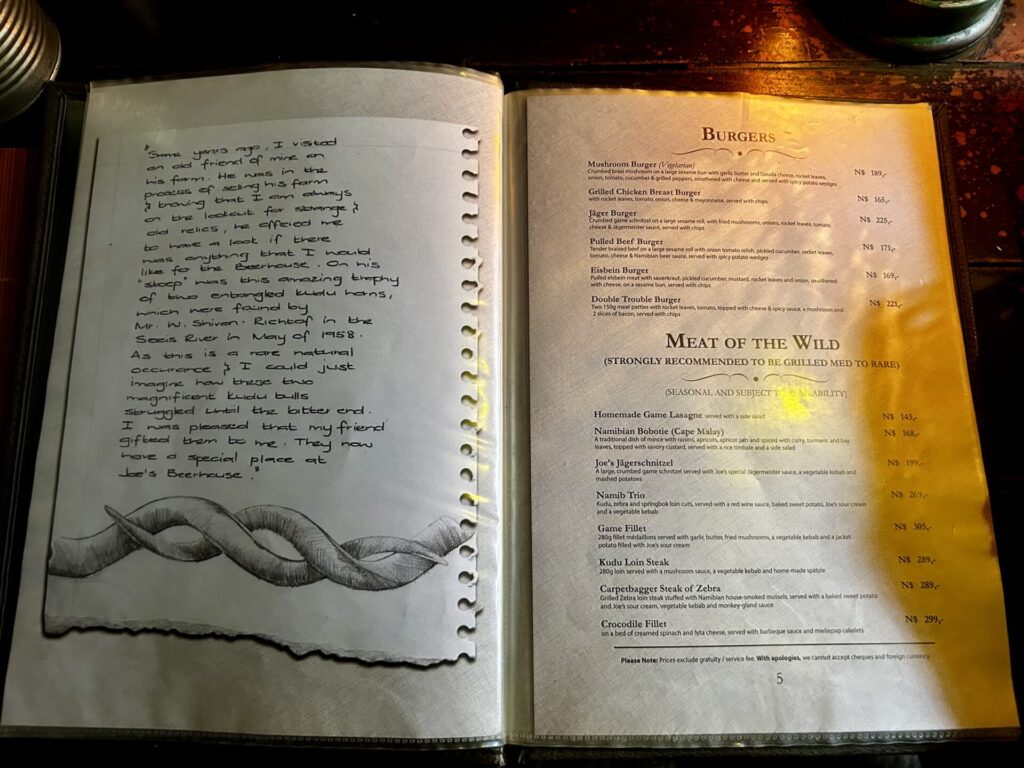 "Some years ago, I visited
an old friend of mine on
his farm. He was in the
process of selling his farm
& knowing that I am always
on the lookout for strange &
old relics, he offered me
to have a look if there
was anything that I would
like for the Beerhouse. On his
"stoep" was this amazing trophy
of two entangled kudu horns,
which were found by
Mr. W. Shivon-Richtof in the
Socis River in May of 1958.
As this is a rare natural
occurance & I could just
imagine how these two
magnificent kudu bulls
struggled until the bitter end.
I was pleased that my friend
gifted them to me. They now
have a special place at
Joe's Beerhouse."
Burgers
Mushroom Burger (Vegetarian)
Crumbed braai mushroom on a large sesame bun with garlic butter and Gouda cheese, rocket leaves,
onion, tomato, cucumber & grilled peppers, smothered with cheese and served with spicy potato wedges
N$ 189,-
Grilled Chicken Breast Burger
with rocket leaves, tomato, onion, cheese & mayonnaise, served with chips
N$ 165,-
Jäger Burger
Crumbed game schnitzel on a large sesame roll, with fried mushrooms, onions, rocket leaves, tomato,
cheese & Jägermeister sauce, served with chips
N$ 225,-
Pulled Beef Burger
Tender braised beef on a large sesame roll with onion tomato relish, pickled cucumber, rocket leaves,
tomato, cheese & Namibian beer sauce, served with spicy potato wedges
N$ 171,-
Eisbein Burger
Pulled eisbein meat with sauerkraut, pickled cucumber, mustard, rocket leaves and onion, smothered
with cheese, on a sesame bun, served with chips
N$ 169,-
Double Trouble Burger
Two 150g meat patties with rocket leaves, tomato, topped with cheese & spicy sauce, a mushroom and
2 slices of bacon, served with chips
N$ 221,-
Meat of the Wild
(STRONGLY RECOMMENDED TO BE GRILLED MED TO RARE)
(SEASONAL AND SUBJECT TO AVAILABILITY)
Homemade Game Lasagne served with a side salad
N$ 143,-
Namibian Bobotie (Cape Malay)
A traditional dish of mince with raisins, apricots, apricot jam and spiced with curry, turmeric and bay
leaves, topped with savory custard, served with a rice timbale and a side salad
N$ 168,-
Joe's Jägerschnitzel
A large, crumbed game schnitzel served with Joe's special Jägermeister sauce, a vegetable kebab and
mashed potatoes
N$ 199,-
Namib Trio
Kudu, zebra and springbok loin cuts, served with a red wine sauce, baked sweet potato, Joe's sour cream
and a vegetable kebab
N$ 269,-
Game Fillet
280g fillet médaillons served with garlic butter, fried mushrooms, a vegetable kebab and a jacket
potato filled with Joe's sour cream
N$ 305,-
Kudu Loin Steak
280g loin served with a mushroom sauce, a vegetable kebab and home-made spätzle
N$ 289,-
Carpetbagger Steak of Zebra
Grilled Zebra loin steak stuffed with Namibian house-smoked mussels, served with a baked sweet potato
and Joe's sour cream, vegetable kebab and monkey-gland sauce
N$ 289,-
Crocodile Fillet
on a bed of creamed spinach and feta cheese, served with barbeque sauce and mieliepap cakelets
N$ 299,-
Please Note: Prices exclude gratuity / service fee. With apologies, we cannot accept cheques and foreign currency.
5